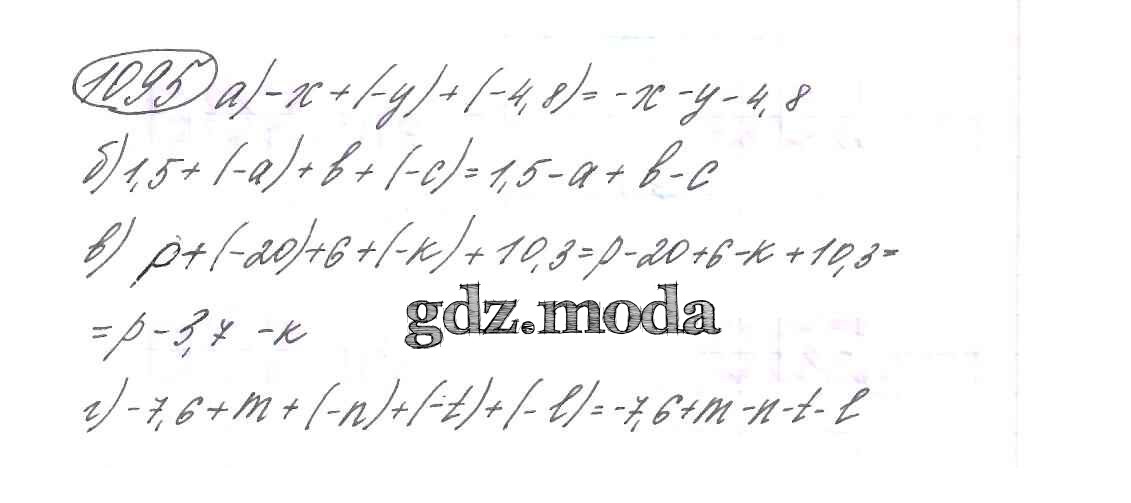 1095 а) -x + (-y) + (-4,8) = -x - y - 4,8
б) 1,5 + (-a) + b + (-c) = 1,5 - a + b - c
в) p + (-20) + 6 + (-k) + 10,3 = p - 20 + 6 - k + 10,3 =
= p - 3,7 - k
gdz.moda
г) -7,6 + m + (-n) + (-t) + (-l) = -7,6 + m - n - t - l